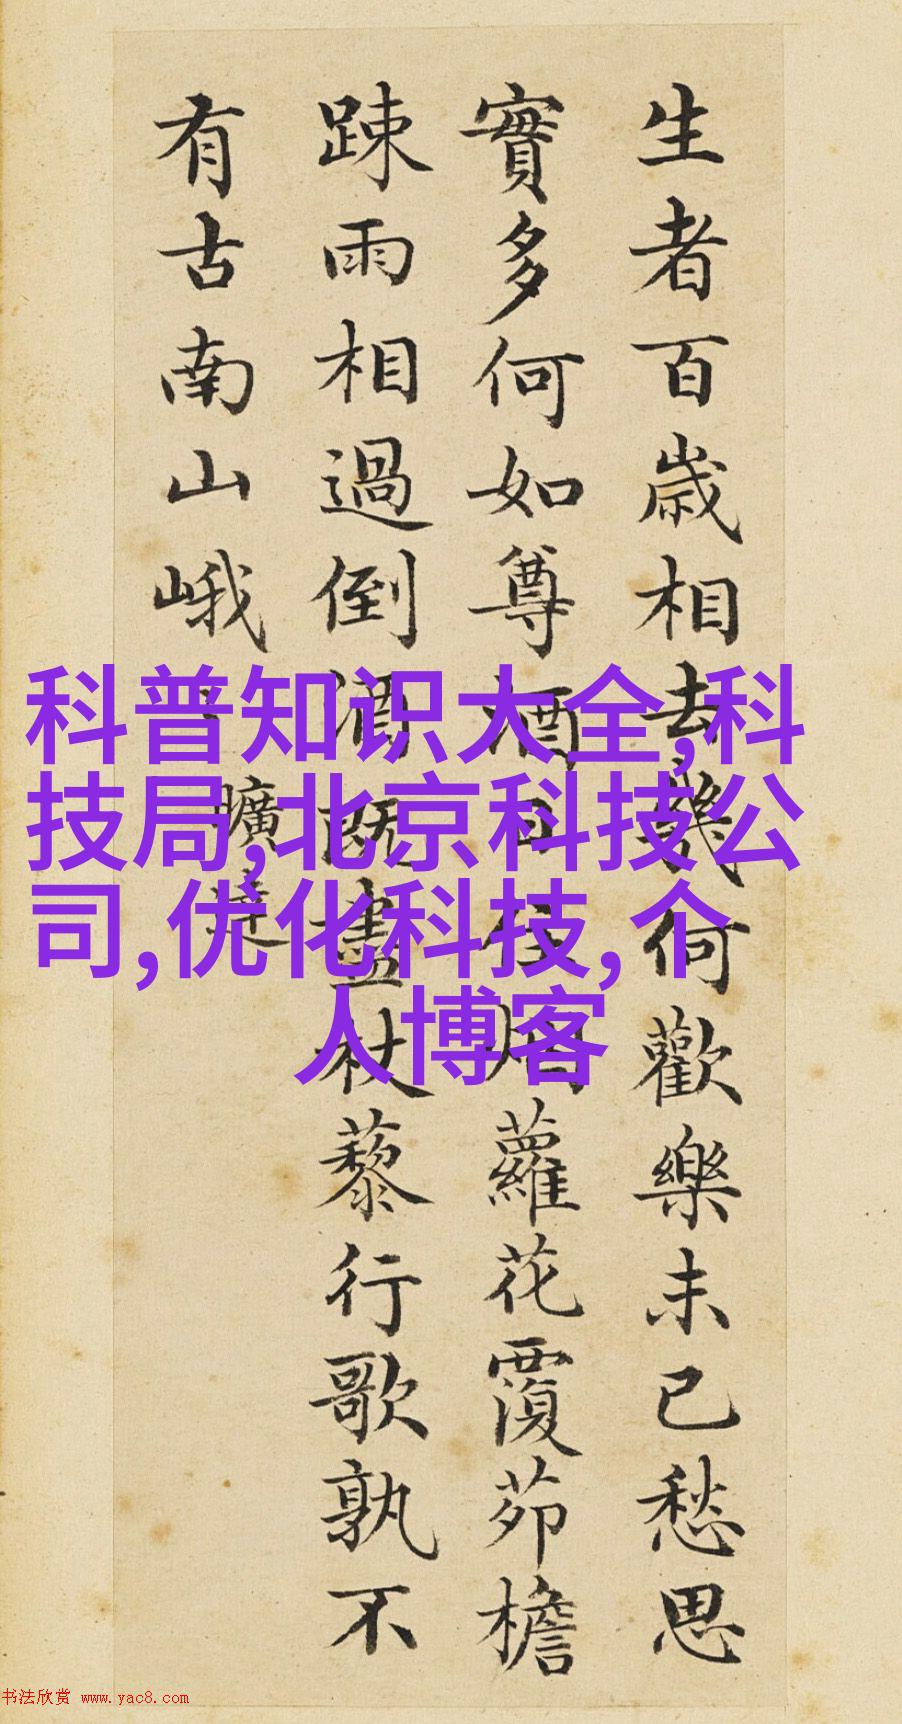 生者百歳相去幾何歡樂未已愁思
實多何如尊酒日往烟蘿花覆茆檐
踈雨相過倒酒既盡杖藜行歌孰不
有古南山峨〻
曠達
科普知识大全,科
技局,北京科技公
司,优化科技,个
人博客
书法欣赏 www.yac8.com